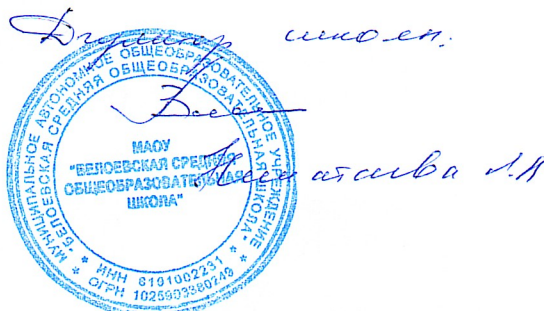 Директор школы:
МУНИЦИПАЛЬНОЕ АВТОНОМНОЕ ОБЩЕОБРАЗОВАТЕЛЬНОЕ УЧРЕЖДЕНИЕ
"БЕЛОЕВСКАЯ СРЕДНЯЯ ОБЩЕОБРАЗОВАТЕЛЬНАЯ ШКОЛА"
МАОУ
"БЕЛОЕВСКАЯ СРЕДНЯЯ
ОБЩЕОБРАЗОВАТЕЛЬНАЯ
ШКОЛА"
* ИНН 8101002231 *
* ОГРН 1025903380249 *